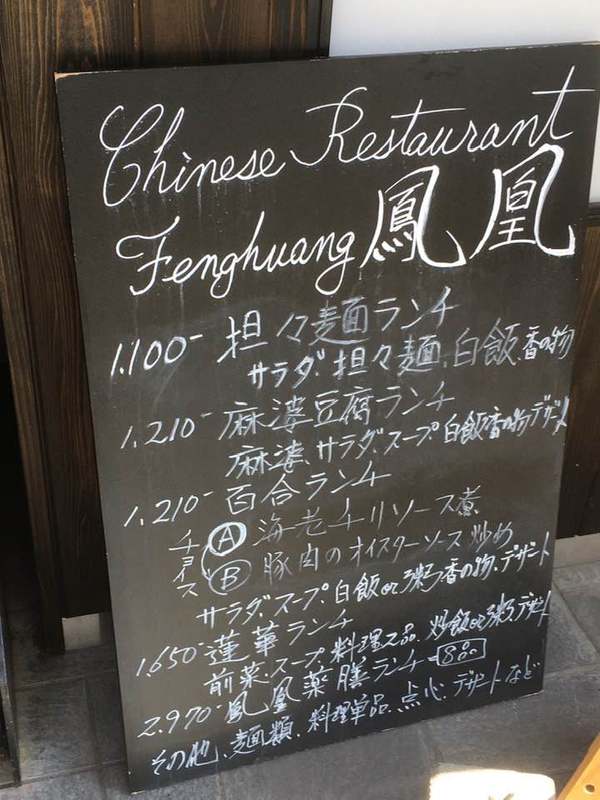 Chinese Restaurant
Fenghuang 鳳凰
1.100- 担々麺ランチ
サラダ、担々麺、白飯、香の物
1.210- 麻婆豆腐ランチ
麻婆、サラダ、スープ、白飯、香の物、デザート
1.210- 百合ランチ
チョイス
Ⓐ 海老チリソース煮
Ⓑ 豚肉のオイスターソース炒め
サラダ、スープ、白飯orお粥、香の物、デザート
1.650- 蓮華ランチ
前菜、スープ、料理2品、炒飯orお粥、デザート
2.970- 鳳凰薬膳ランチ
その他、麺類、料理単品、点心、デザートなど